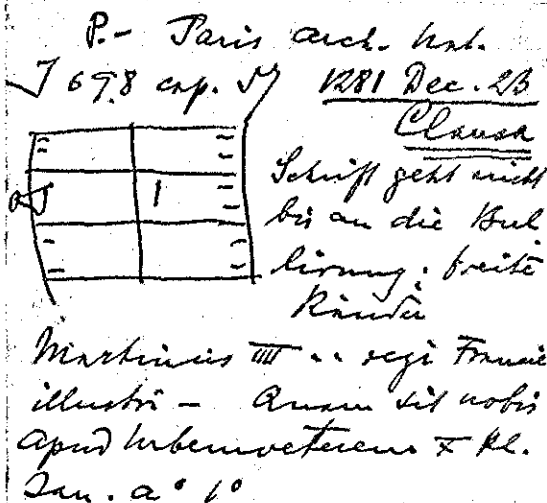 P. - Paris arch. nat.
J 698 cap. 57 1281 Dec. 23
Clausa
Schrift geht nicht
bis an die Bul
lierung; breite
Ränder
1
Martinus IIII .. regi Francie
illustri - Quam sit nobis
apud Urbemveterem X kl.
Jan. a° 1°